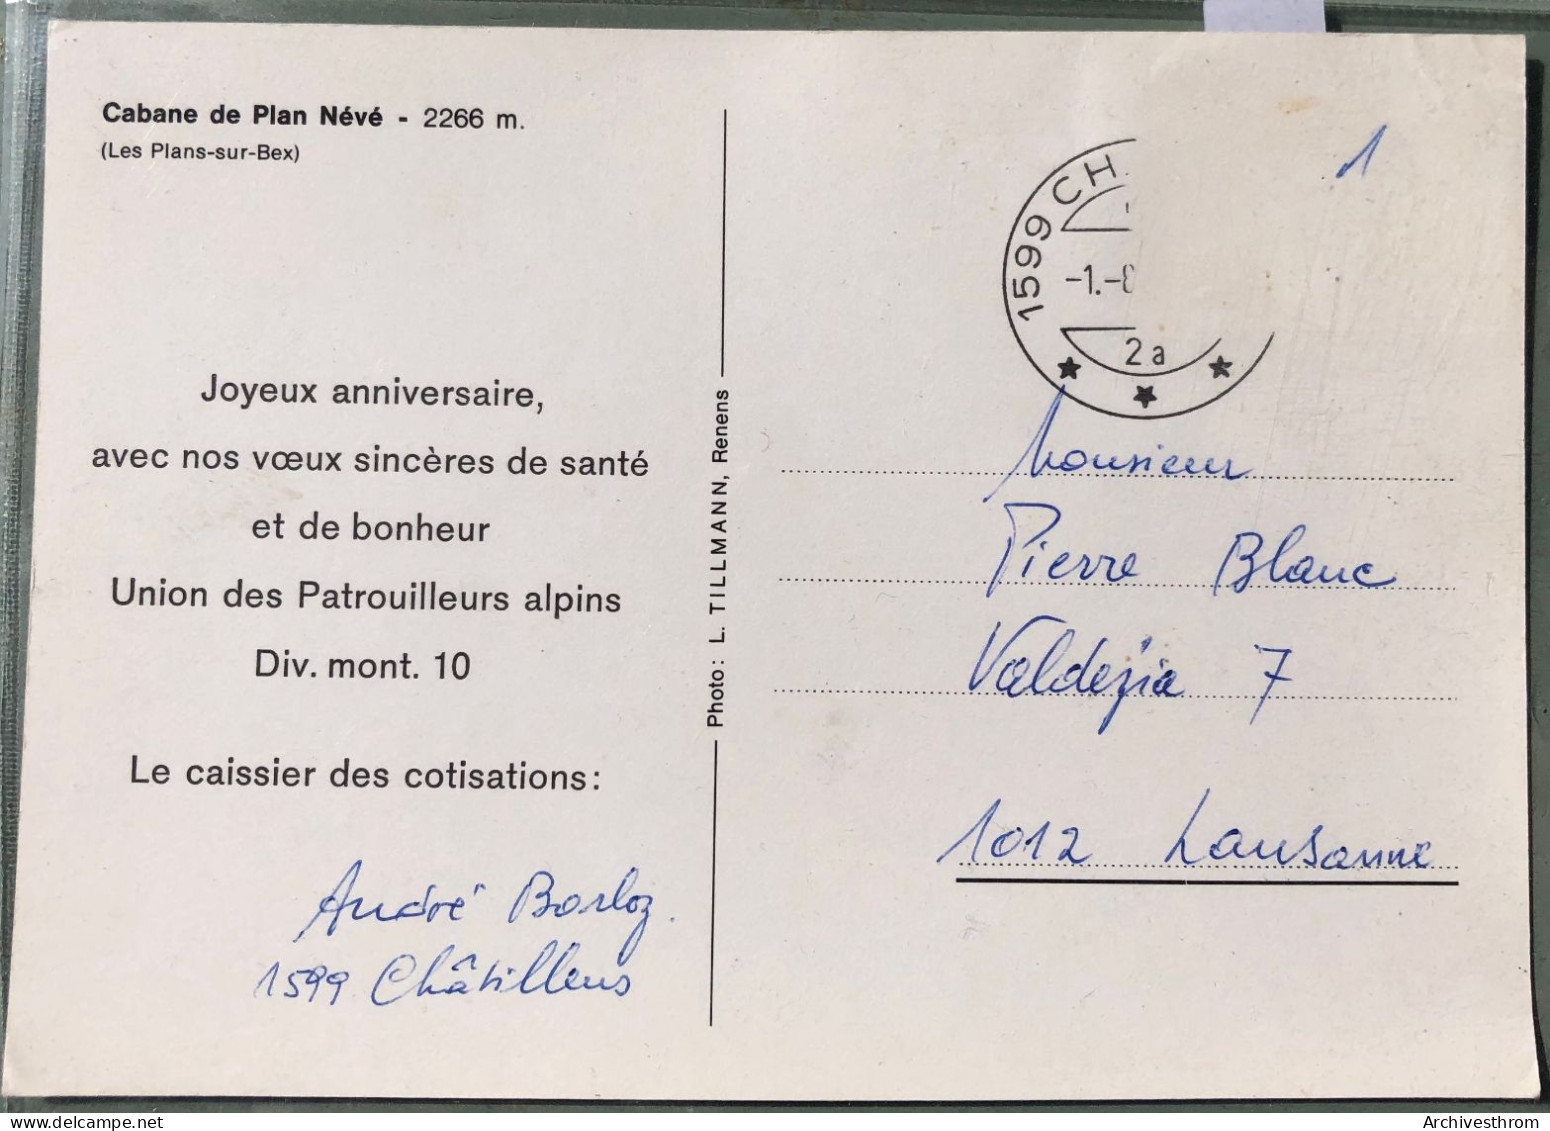 Cabane de Plan Névé - 2266 m.
(Les Plans-sur-Bex)
Joyeux anniversaire,
avec nos vœux sincères de santé
et de bonheur
Union des Patrouilleurs alpins
Div. mont. 10
Le caissier des cotisations:
André Borloz
1599 Châtillens
Photo: L. TILLMANN, Renens
1
1599 CH
-1.-8
2a
Monsieur
Pierre Blanc
Valdézia 7
1012 Lausanne
Archivesthrom